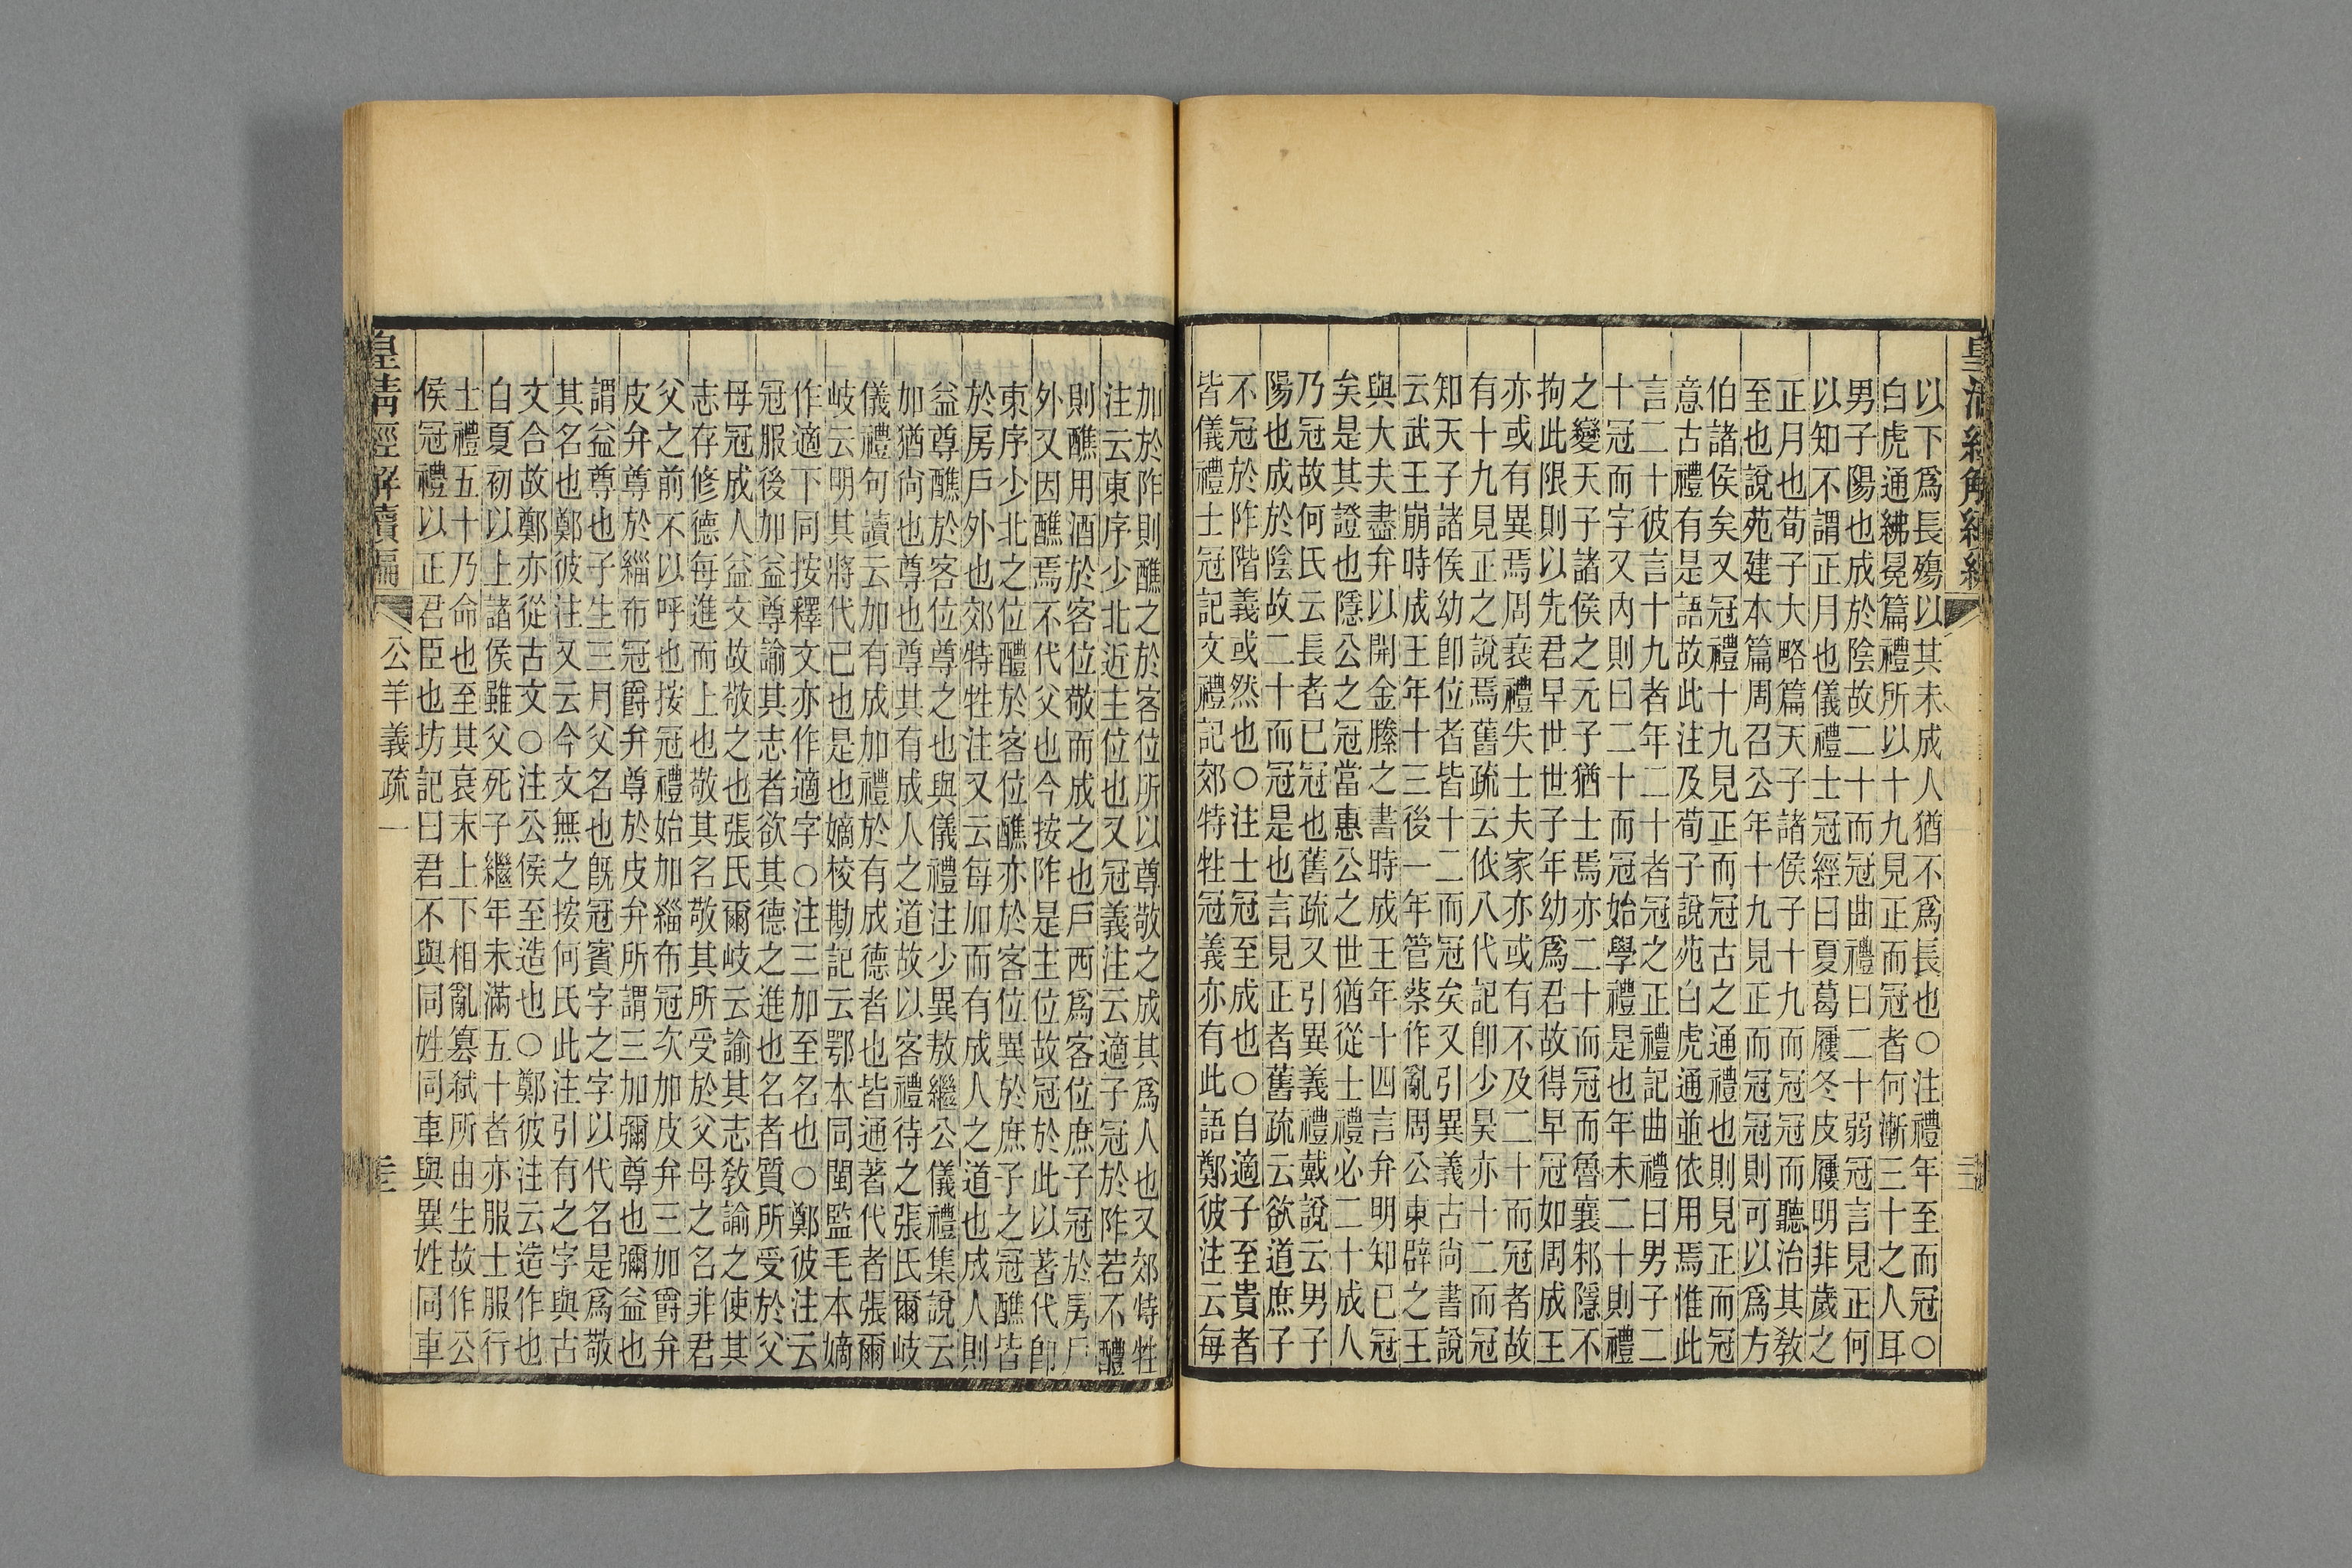 以下爲長殤以其未成人猶不爲長也○注禮年至而冠○
白虎通紼冕篇禮所以十九見正而冠者何漸三十之人耳
男子陽也成於陰故二十而冠曲禮曰二十弱冠言見正何
以知不謂正月也儀禮士冠經曰夏葛屨冬皮屨明非歲之
正月也荀子大略篇天子諸侯子十九而冠冠而聽治其敎
至也說苑建本篇周召公年十九見正而冠冠則可以爲方
伯諸侯矣又冠禮十九見正而冠古之通禮也則見正而冠
意古禮有是語故此注及荀子說苑白虎通並依用焉惟此
言二十彼言十九者年二十者冠之正禮記曲禮曰男子二
十冠而字又內則曰二十而冠始學禮是也年未二十則禮
之變天子諸侯之元子猶士焉亦二十而冠而魯襄邾隱不
拘此限則以先君早世世子年幼爲君故得早冠如周成王
亦或有異焉周衰禮失士夫家亦或有不及二十而冠者故
有十九見正之說焉舊疏云依八代記卽少昊亦十二而冠
知天子諸侯幼卽位者皆十二而冠矣又引異義古尙書說
云武王崩時成王年十三後一年管蔡作亂周公東辟之王
與大夫盡弁以開金縢之書時成王年十四言弁明知已冠
矣是其證也隱公之冠當惠公之世猶從士禮必二十成人
乃冠故何氏云長者已冠也舊疏又引異義禮戴說云男子
陽也成於陰故二十而冠是也言見正者舊疏云欲道庶子
不冠於阼階義或然也○注士冠至成也○自適子至貴者
皆儀禮士冠記文禮記郊特牲冠義亦有此語鄭彼注云每
加於阼則醮之於客位所以尊敬之成其爲人也又郊特牲
注云東序少北近主位也又冠義注云適子冠於阼若不醴
則醮用酒於客位敬而成之也戶西爲客位庶子冠於房戶
外又因醮焉不代父也今按阼是主位故冠於此以著代卽
東序少北之位醴於客位醮亦於客位異於庶子之冠醮皆
於房戶外也郊特牲注又云每加而有成人之道也成人則
益尊醮於客位尊之也與儀禮注少異敖繼公儀禮集說云
加猶尙也尊也尊其有成人之道故以客禮待之張氏爾岐
儀禮句讀云加有成加禮於有成德者也皆通著代者張爾
岐云明其將代已也是也嫡校勘記云鄂本同閩監毛本嫡
作適下同按釋文亦作適字○注三加至名也○鄭彼注云
冠服後加益尊諭其志者欲其德之進也名者質所受於父
母冠成人益文故敬之也張氏爾岐云諭其志敎諭之使其
志存修德每進而上也敬其名敬其所受於父母之名非君
父之前不以呼也按冠禮始加緇布冠次加皮弁三加爵弁
皮弁尊於緇布冠爵弁尊於皮弁所謂三加彌尊也彌益也
謂益尊也子生三月父名也旣冠賓字之字以代名是爲敬
其名也鄭彼注又云今文無之按何氏此注引有之字與古
文合故鄭亦從古文○注公侯至造也○鄭彼注云造作也
自夏初以上諸侯雖父死子繼年未滿五十者亦服士服行
士禮五十乃命也至其衰末上下相亂篡弒所由生故作公
侯冠禮以正君臣也坊記曰君不與同姓同車與異姓同車
皇淸經解續編
公羊義疏一